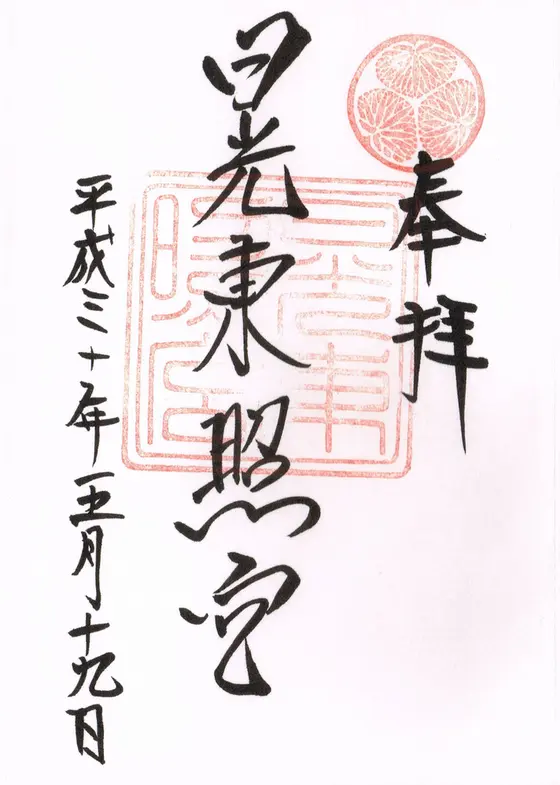 奉拝
日光東照宮
平成三十年五月十九日